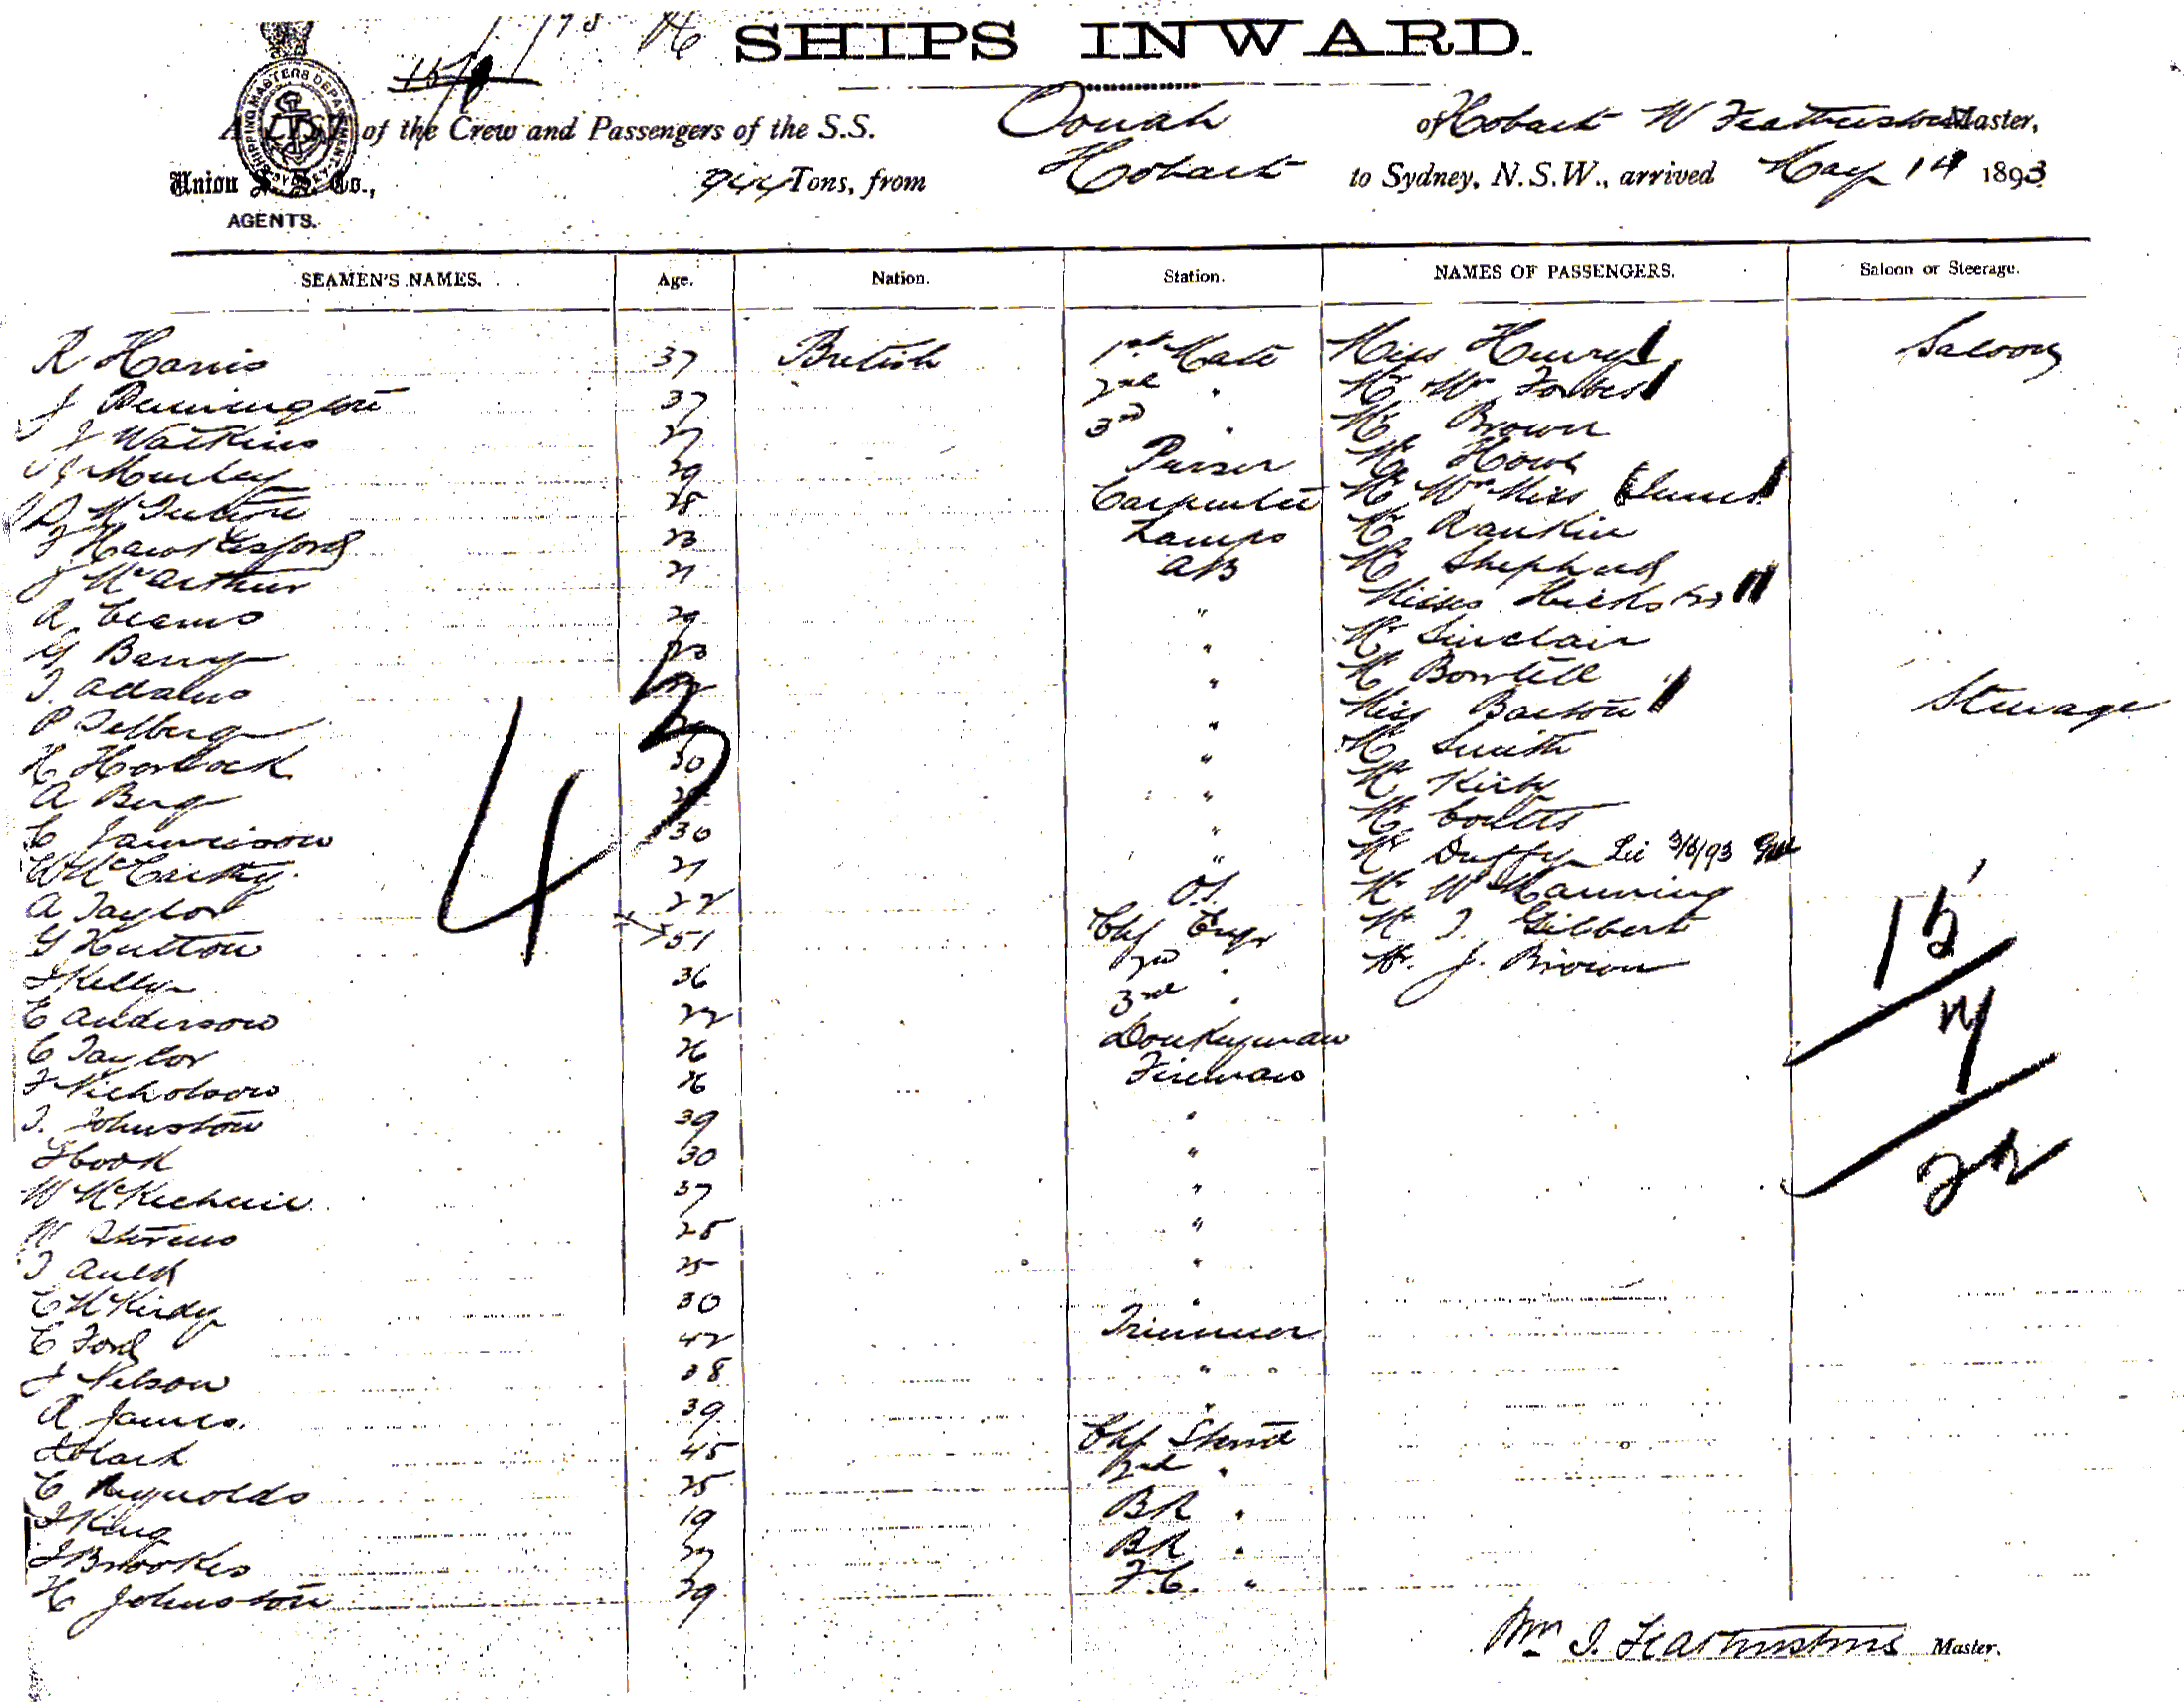 SHIPS INWARD.
A LIST of the Crew and Passengers of the S.S. Oonah of Hobart W Featherstone Master,
Union S. S. Co., AGENTS. Tons, from Hobart to Sydney, N.S.W., arrived May 14 1893
SHIPPING MASTERS DEPARTMENT
SEAMEN'S NAMES. Age. Nation. Station. NAMES OF PASSENGERS. Saloon or Steerage.
R Harris 37 British 1st Mate Miss Henry Saloon
J Pennington 37 2nd " Mr Mrs Forbes
J Watkins 27 3rd " Mr Brown
Murley 29 Purser Mr Howe
28 Carpenter Mr Mrs Miss
F Hawkesford 23 Lamps Mr Rankin
J McArthur 21 AB Mr Shepherd
A Ceams 29 " Misses Hicks (2)
G Barry 23 " Mr Sinclair
T Adams " Mr Bowtell
P Selberg " Miss Barton Steerage
H Horlock 30 " Mr Smith
A Berg " Mr Kirby
C Jamieson 30 " Mr Coutts
W McCarthy 21 " Mr Duffy Lic 3/6/93
A Taylor 22 O.S. Mr W Manning
G Hutton 51 Chf Engr Mr T. Gilbert
J Kelly 36 2nd " Mr. J. Brown
E Anderson 22 3rd "
C Taylor 26 Donkeyman
F Nicholson 26 Fireman
T. Johnston 39 "
J Cook 30 "
W McKechnie 37 "
W Stevens 25 "
T Auld 25 "
C McKirdy 30 "
E Ford 42 Trimmer
J Nelson 38 "
A James. 39 "
45 Chf Stewd
C Reynolds 25 2nd "
J King 19 BR "
J Brookes 27 BR "
H Johnston 29 F.C. "
45
15
7
22
Wm J. Featherstone Master.